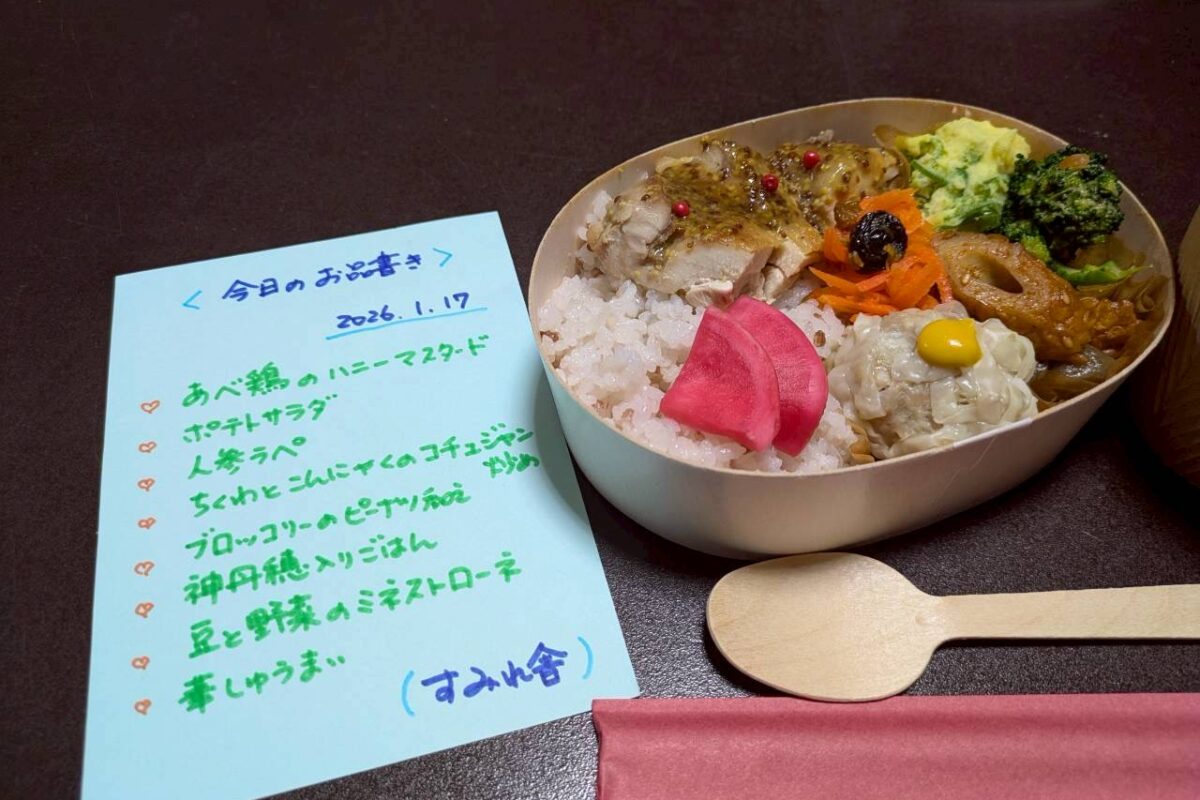 <今日のお品書き>
2026.1.17
あべ鶏のハニーマスタード
ポテトサラダ
人参ラペ
ちくわとこんにゃくのコチュジャン
炒め
ブロッコリーのピーナツ和え
神丹穂入りごはん
豆と野菜のミネストローネ
華しゅうまい
(すみれ舎)